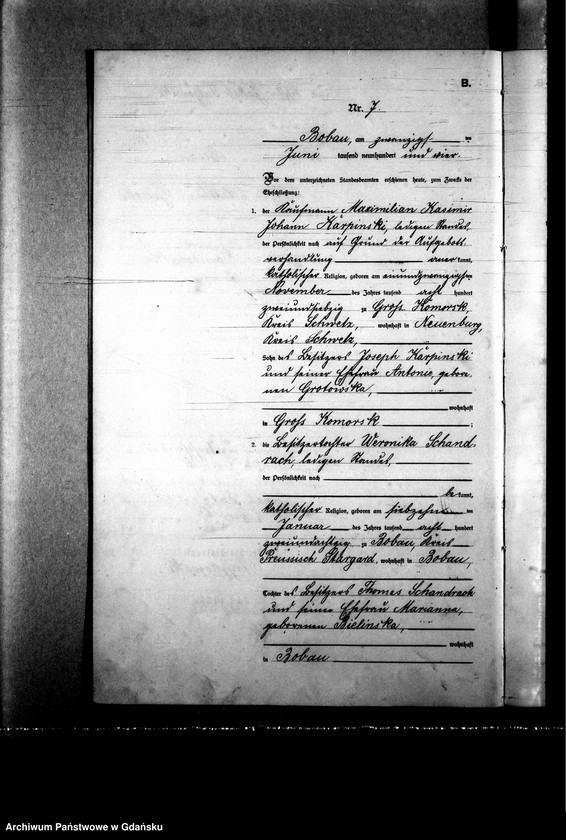 B.
Nr. 7.
Bobau, am zwanzigsten
Juni tausend neunhundert und vier.
Vor dem unterzeichneten Standesbeamten erschienen heute, zum Zwecke der
Eheschließung:
1. der Kaufmann Maximilian Kasimir
Johann Karpinski, ledigen Standes,
der Persönlichkeit nach auf Grund der Aufgebots
verhandlung anerkannt,
katholischer Religion, geboren am einundzwanzigsten
November des Jahres tausend acht hundert
zweiundsiebzig zu Gross Komorsk,
Kreis Schwetz, wohnhaft in Neuenburg,
Kreis Schwetz,
Sohn des Besitzers Joseph Karpinski
und seiner Ehefrau Antonie, gebore
nen Grotowska,
wohnhaft
in Gross Komorsk ;
2. die Besitzertochter Weronika Schand-
rach, ledigen Standes,
der Persönlichkeit nach
be kannt,
katholischer Religion, geboren am siebzehnten
Januar des Jahres tausend acht hundert
zweiundachtzig zu Bobau, Kreis
Preussisch Stargard, wohnhaft in Bobau,
Tochter des Besitzers Thomas Schandrach
und seiner Ehefrau Marianna,
geborenen Bielinska,
wohnhaft
in Bobau
Archiwum Państwowe w Gdańsku